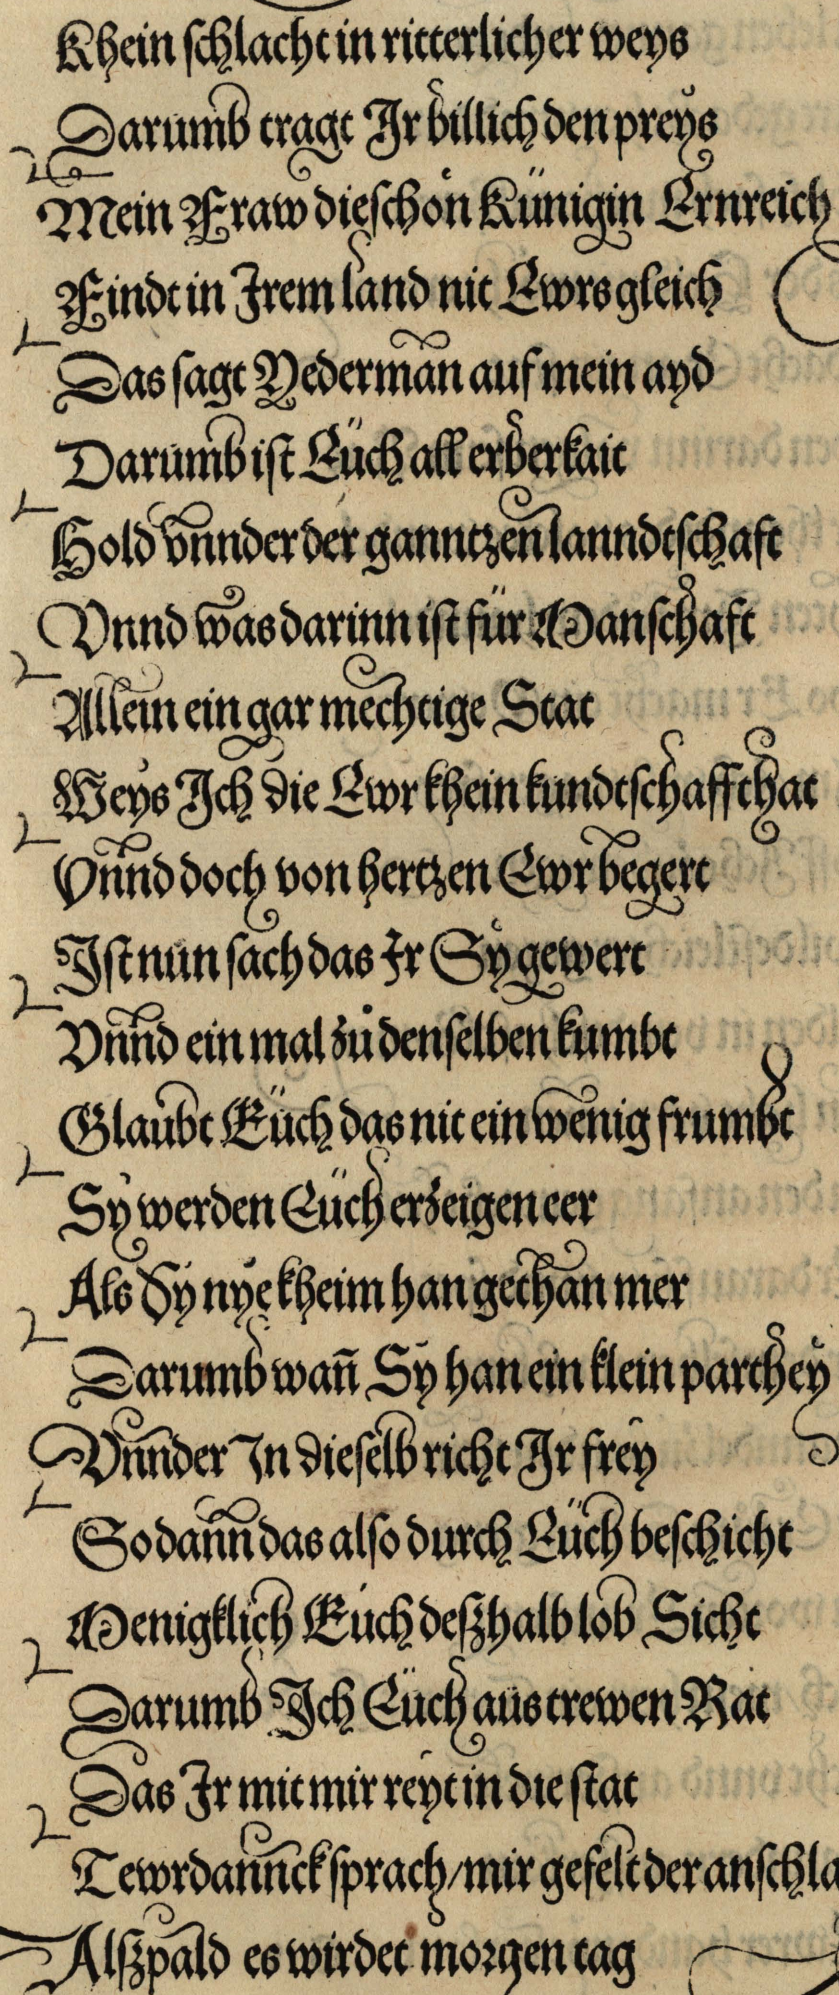 Khein schlacht in ritterlicher weys
Darumb tragt Ir billich den preys
Mein Fraw die schön Künigin Ernreich
Findt in Irem land nit Ewrs gleich
Das sagt Yederman auf mein ayd
Darumb ist Eüch all erberkait
Hold vnnder der ganntzen lanndtschaft
Vnnd was darinn ist für Manschaft
Allein ein gar mechtige Stat
Weys Ich die Ewr khein kundtschafft hat
Vnnd doch von hertzen Ewr begert
Ist nun sach das Ir Sy gewert
Vnnd ein mal zů denselben kumbt
Glaubt Eüch das nit ein wenig frumbt
Sy werden Eüch erzeigen eer
Als Sy nye kheim han gethan mer
Darumb wan̄ Sy han ein klein parthey
Vnnder In dieselb richt Ir frey
So dann das also durch Eüch beschicht
Menigklich Eüch deszhalb lob Sicht
Darumb Ich Eüch aus trewen Rat
Das Ir mit mir reyt in die stat
Tewrdannck sprach/mir gefelt der anschla
Alszpald es wirdet morgen tag